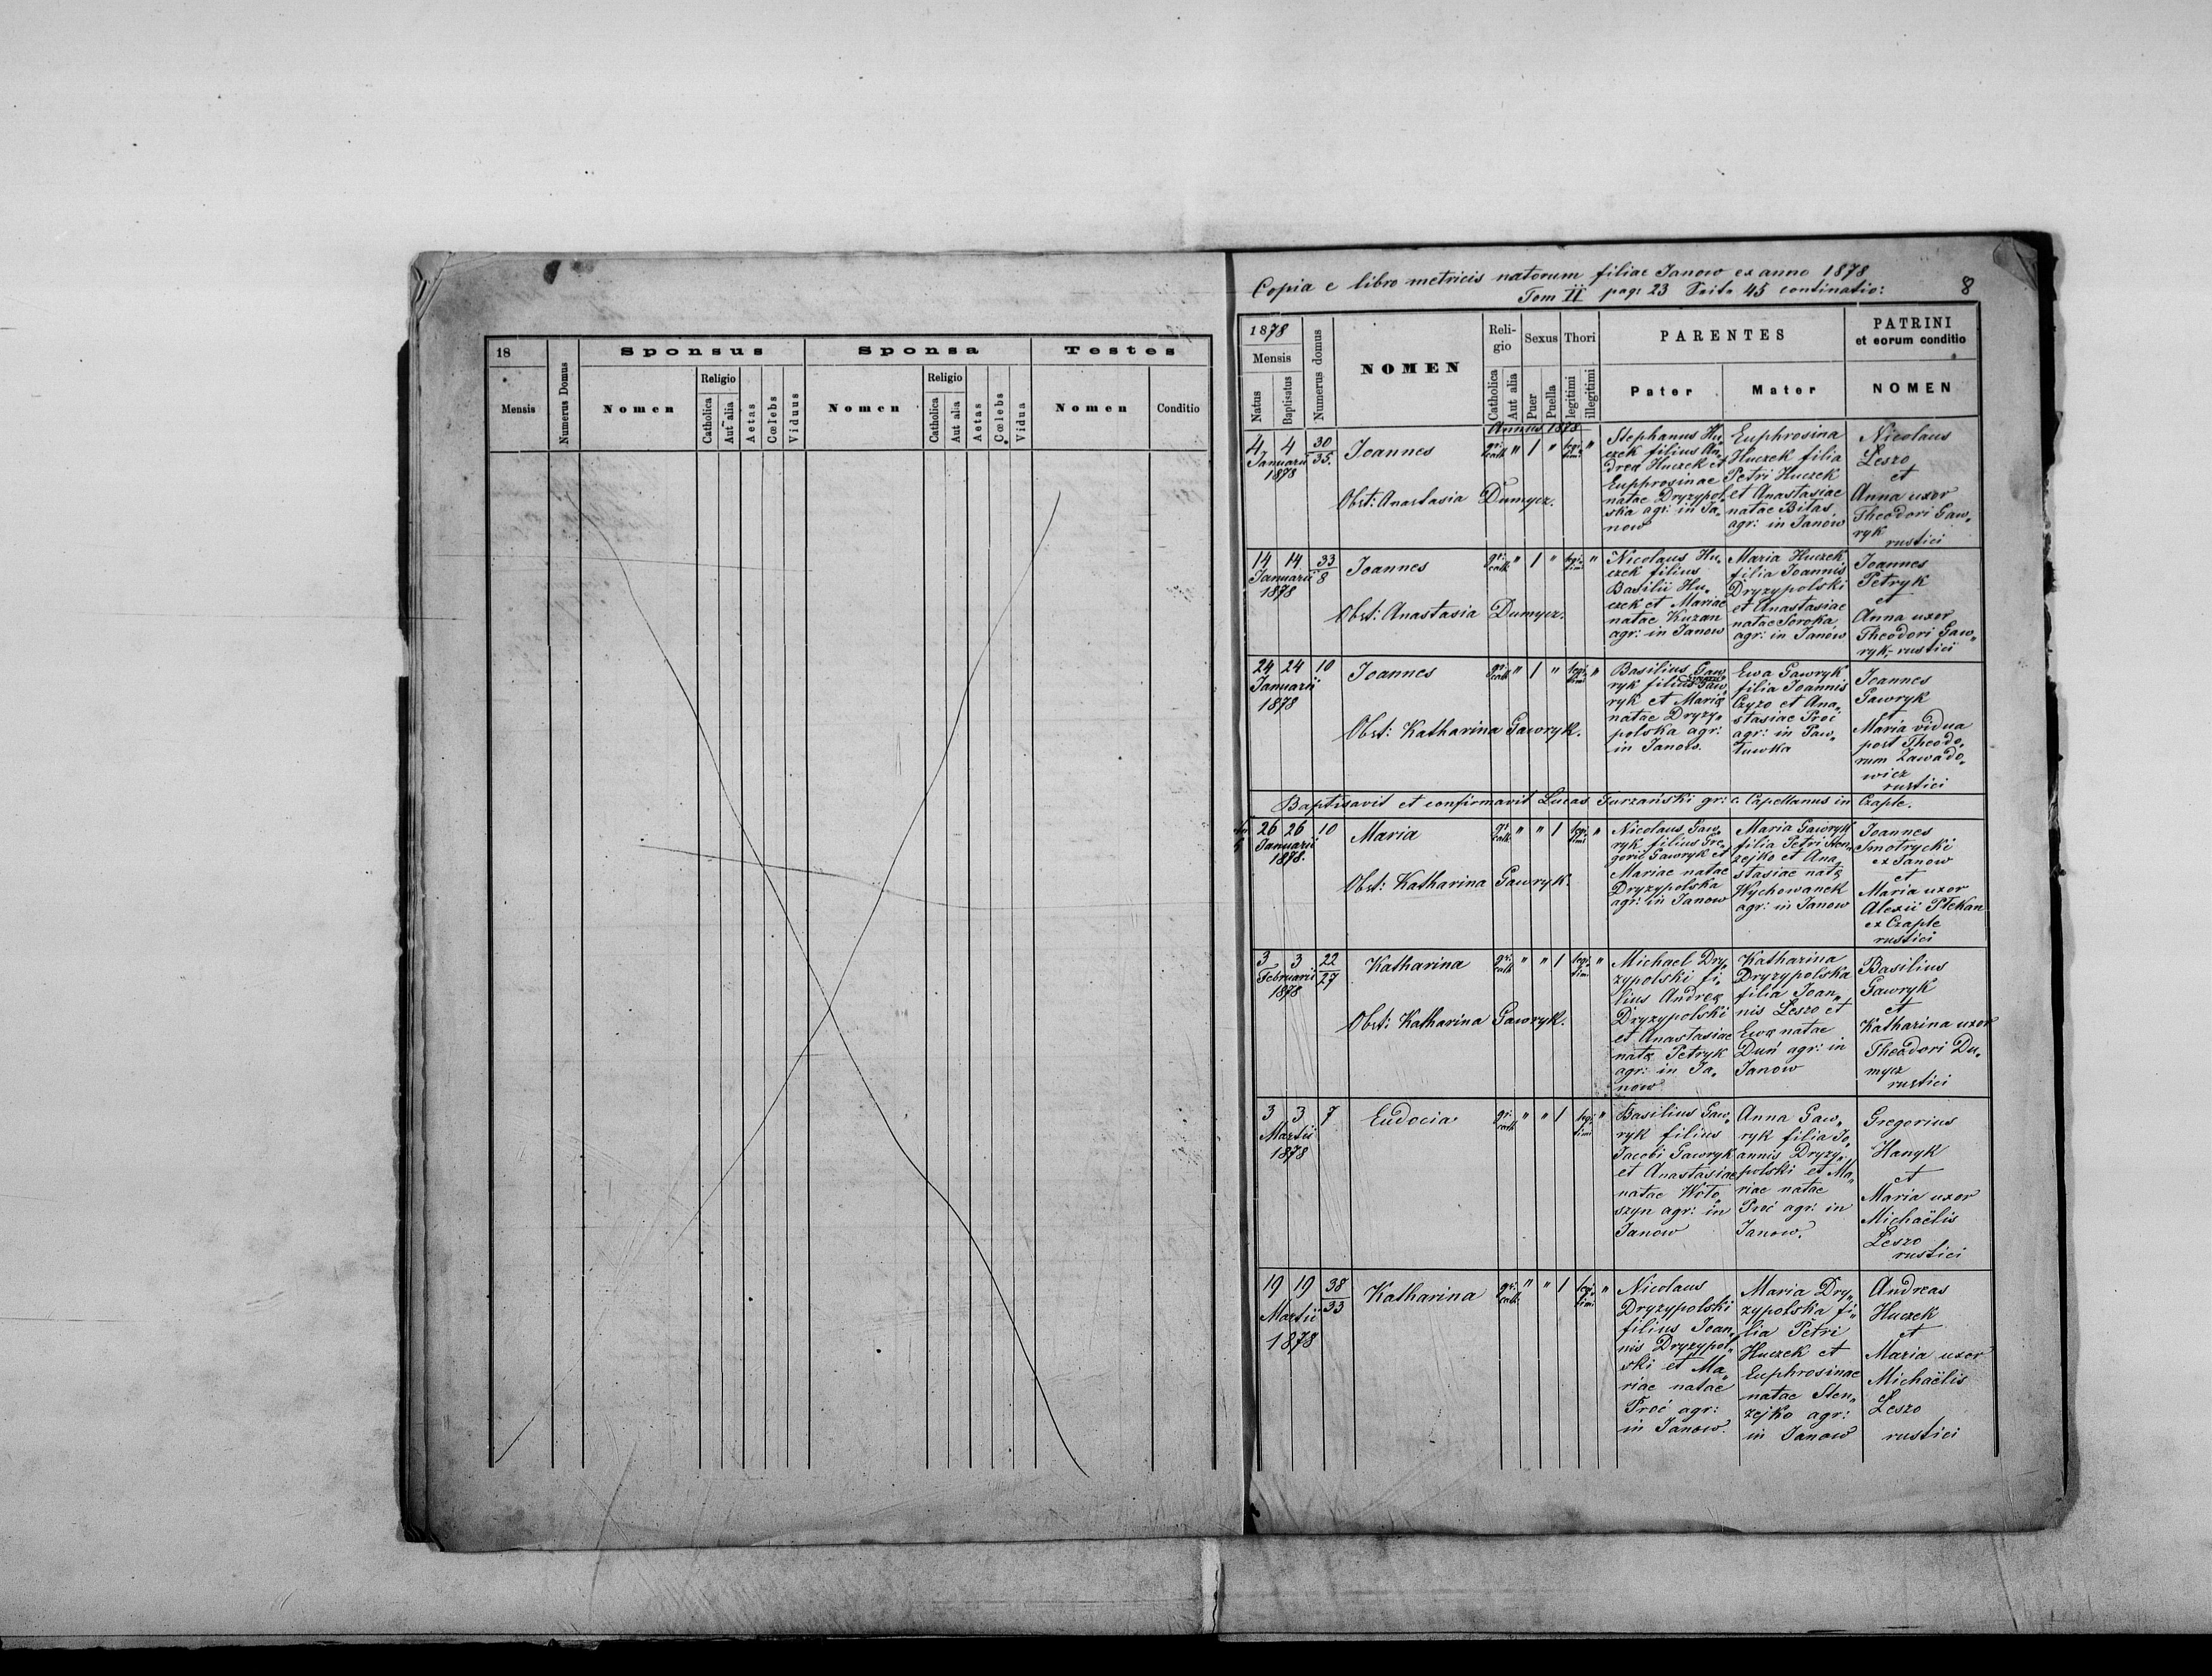 18
Mensis
Numerus Domus
Sponsus
Nomen
Religio
Catholica
Aut alia
Aetas
Cœlebs
Viduus
Sponsa
Nomen
Religio
Catholica
Aut alia
Aetas
Cœlebs
Vidua
Testes
Nomen
Conditio
Copia e libro metricis natorum filiae Janow ex anno 1878
Tom II pag: 23 Seite 45 continatio:
8
1878
Mensis
Natus
Baptisatus
Numerus domus
NOMEN
Reli-
gio
Catholica
Aut alia
Sexus
Puer
Puella
Thori
legitimi
illegitimi
PARENTES
Pater
Mater
PATRINI
et eorum conditio
NOMEN
Annus 1878
4 4 30
Januarii 35.
1878
Joannes
gr: cath " 1 " legi timi "
Obst: Anastasia Dumycz.
Stephanus Hu„
czek filius An„
drea Huczek et
Eupprosinae
natae Dryzypol„
ska agr: in Ja„
now
Euphrosina
Huczek filia
Petri Huczek
et Anastasiae
natae Bitas
agr: in Janów
Nicolaus
Leszo
et
Anna uxor
Theodori Gaw„
ryk
rustici
14 14 33
Januarii 8
1878
Joannes
gr: cath " 1 " legi timi "
Obst: Anastasia Dumycz.
Nicolaus Hu„
czek filius
Basilii Hu„
czek et Mariae
natae Kuzan
agr: in Janow
Maria Huczek
filia Joannis
Dryzypolski
et Anastasiae
natae Soroka
agr: in Janów
Joannes
Petryk
et
Anna uxor
Theodori Gaw„
ryk,- rustici
24 24 10
Januarii
1878
Joannes
gr: cath " 1 " legi timi "
Obst: Katharina Gawryk.
Basilius Gaw„
ryk filius Gaw„
ryk et Maria
natae Dryzy„
polska agr:
in Janow.
Ewa Gawryk
filia Joannis
Czyzo et Ana„
stasiae Proć
agr: in Paw„
łuwka
Joannes
Gawryk
et
Maria vidua
post Theodo„
rum Zawado„
wicz
rustici
Baptisavit et confirmavit Lucas Turzański gr: c. Capellanus in Czaple.
26 26 10
Januarii
1878.
Maria
gr: cath " " 1 legi timi "
Obst: Katharina Gawryk.
Nicolaus Gaw„
ryk filius Gre„
gorii Gawryk et
Mariae natae
Dryzypolska
agr: in Janow
Maria Gawryk
filia Petri Sten„
zejko et Ana„
stasiae natę
Wychowanek
agr: in Janow
Joannes
Smotrycki
ex Janow
et
Maria uxor
Alexii Płekan
ex Czaple
rustici
3 3 22
Februarii 27
1878
Katharina
gr: cath " " 1 legi timi "
Obst: Katharina Gawryk.
Michael Dry„
zypolski fi„
lius Andreę
Dryzypolski
et Anastasiae
natę Petryk
agr: in Ja„
now
Katharina
Dryzypolska
filia Joan„
nis Leszo et
Ewę natae
Duń agr: in
Janow
Basilius
Gawryk
et
Katharina uxor
Theodori Du„
mycz
rustici
3 3 7
Martii
1878
Eudocia
gr: cath " " 1 legi timi "
Basilius Gaw„
ryk filius
Jacobi Gawryk
et Anastasiae
natae Woło„
szyn agr: in
Janow
Anna Gaw„
ryk filia Jo„
annis Dryzy„
polski et Ma„
riae natae
Proć agr: in
Janow.
Gregorius
Hanyk
et
Maria uxor
Michaëlis
Leszo
rustici
19 19 38
Martii 33
1878
Katharina
gr: cath " " 1 legi timi "
Nicolaus
Dryzypolski
filius Joan„
nis Dryzypol„
ski et Ma„
riae natae
Proć agr:
in Janow.
Maria Dry„
zypolska fi„
lia Petri
Huczek et
Euphrosinae
natae Sten„
zejko agr:
in Janow
Andreas
Huczek
et
Maria uxor
Michaëlis
Leszo
rustici